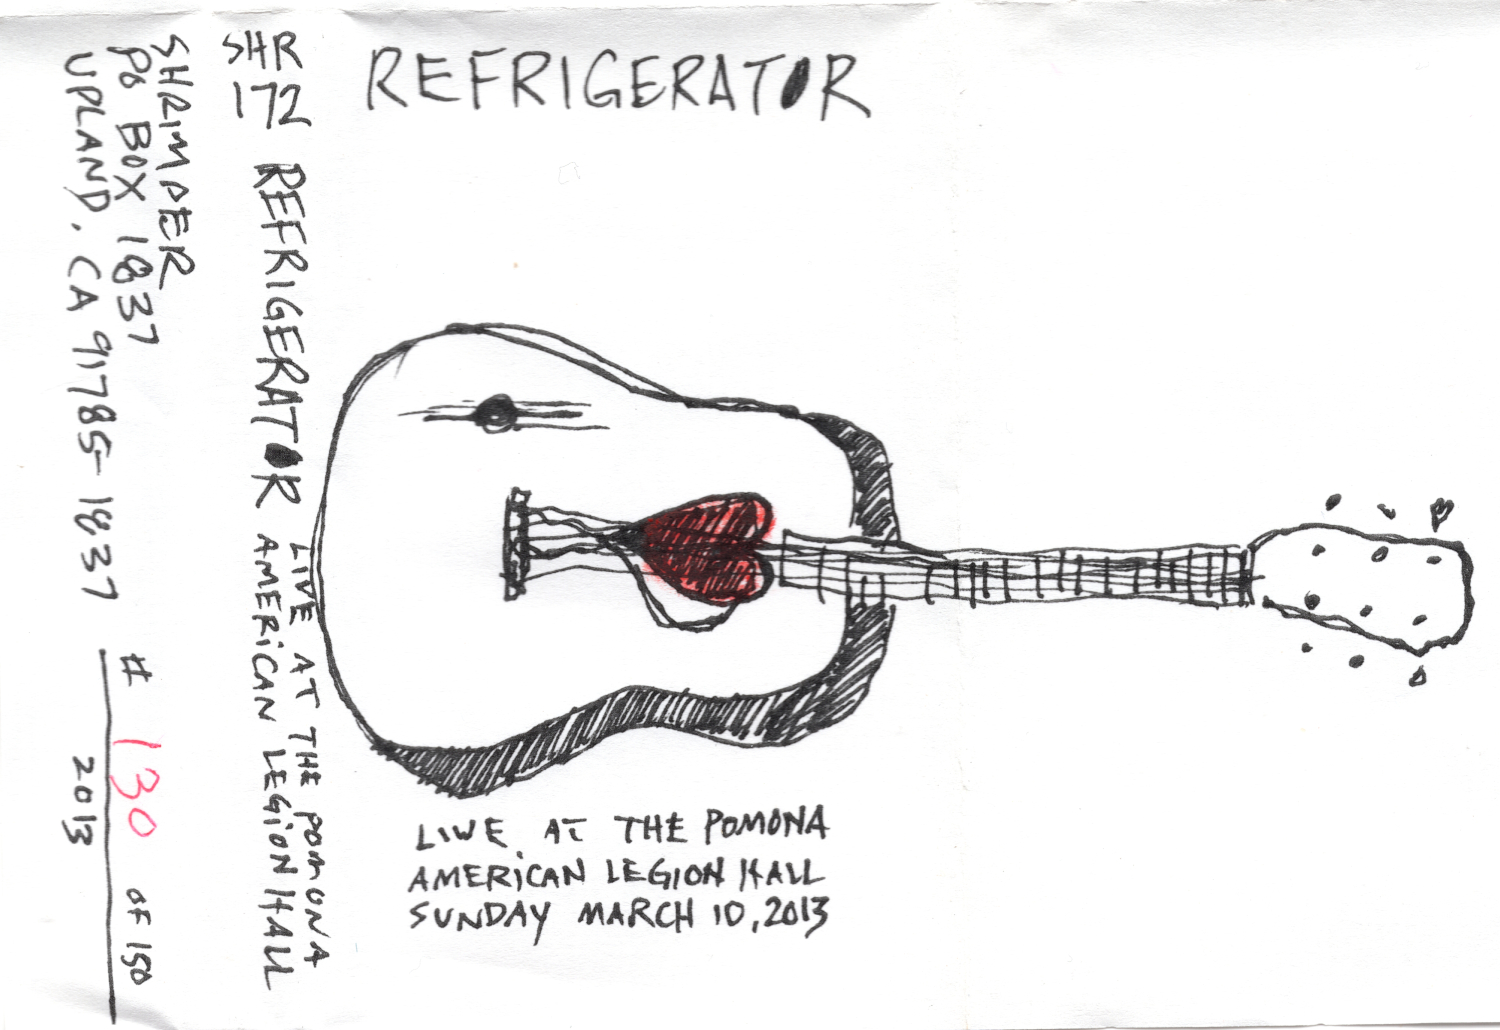 REFRIGERATOR
LIVE AT THE POMONA
AMERICAN LEGION HALL
SUNDAY MARCH 10, 2013
SHR
172
REFRIGERATOR
LIVE AT THE POMONA
AMERICAN LEGION HALL
SHRIMPER
PO BOX 1837
UPLAND, CA 91785-1837
# 130 OF 150
2013